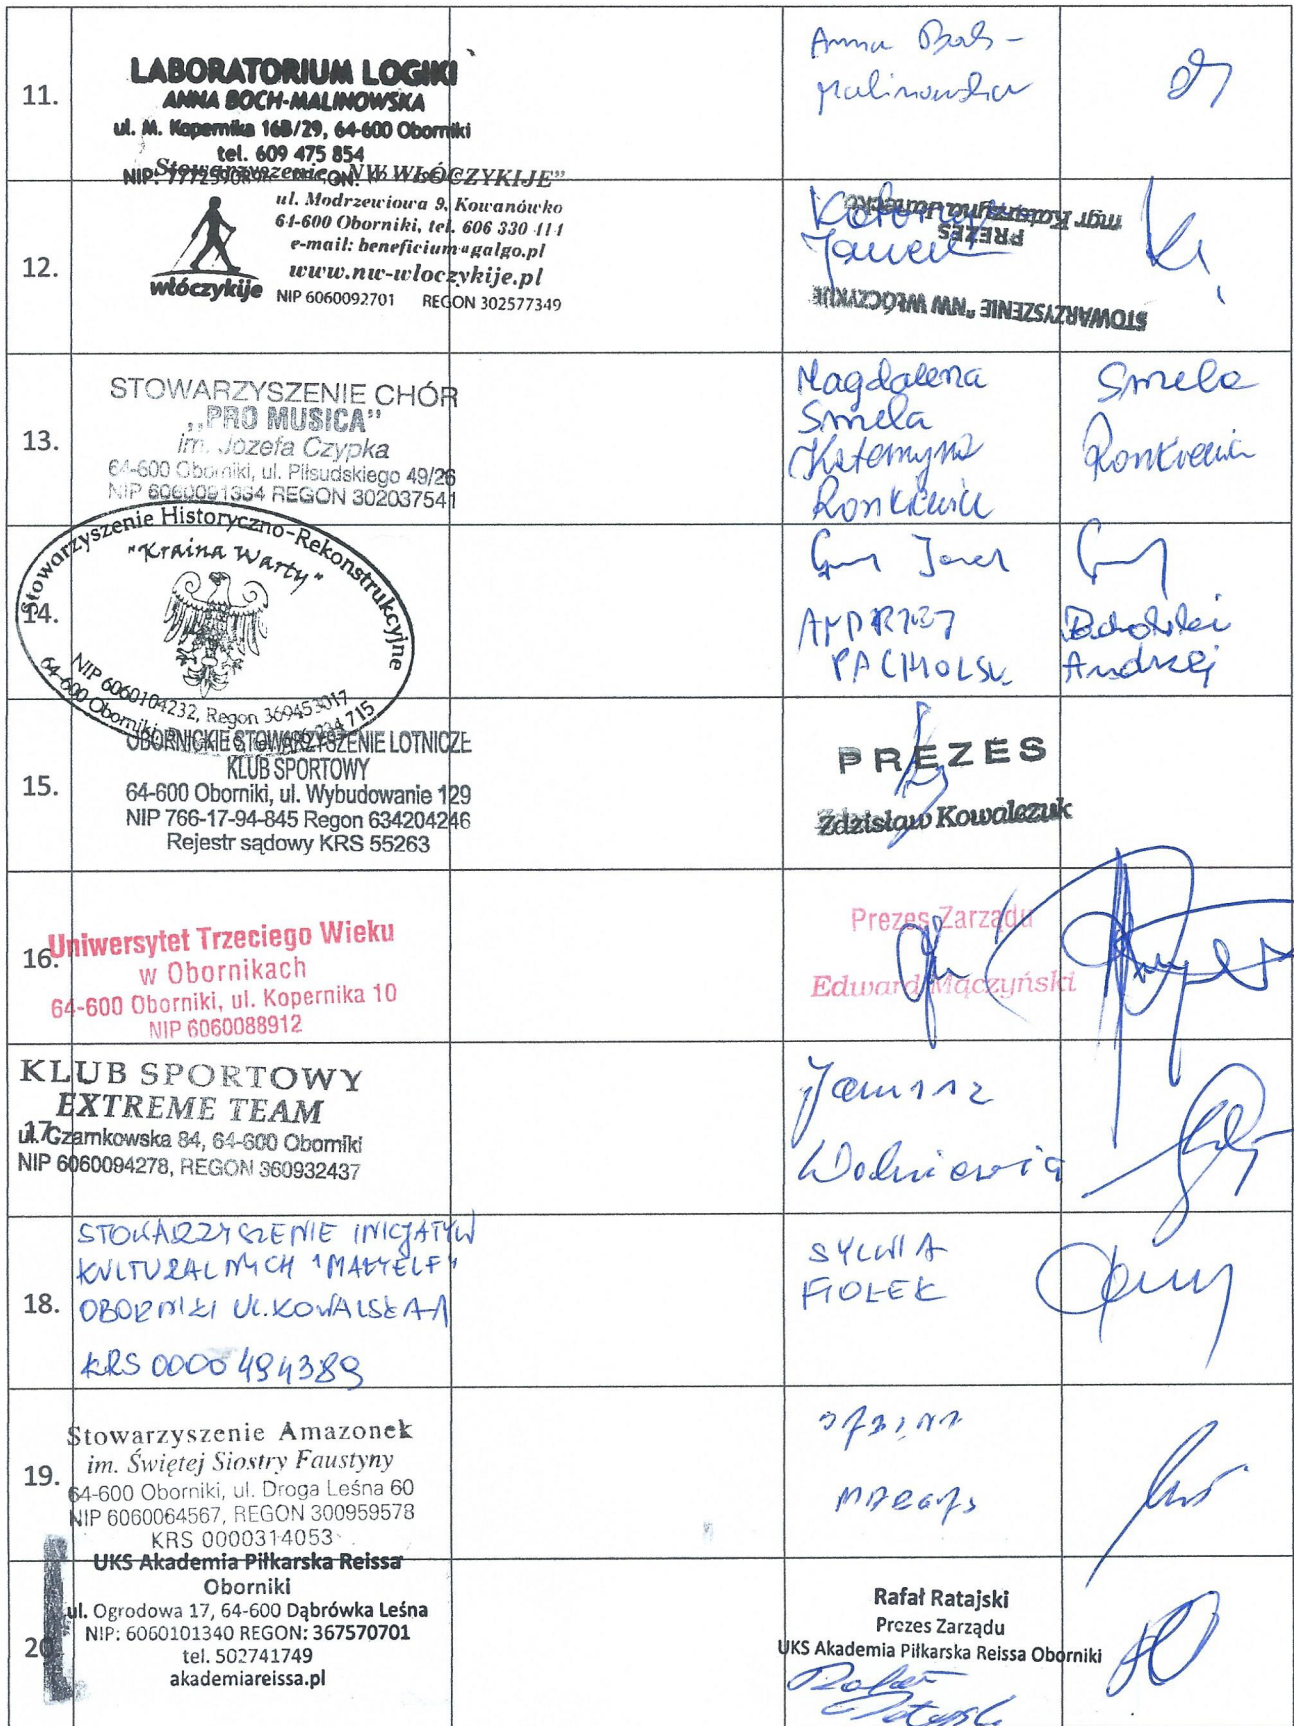 11.
LABORATORIUM LOGIKI
ANNA BOCH-MALINOWSKA
ul. M. Kopernika 16B/29, 64-600 Oborniki
tel. 609 475 854
NIP:
Anna Boch-
Malinowska
12.
Stowarzyszenie „NW WŁÓCZYKIJE”
ul. Modrzewiowa 9, Kowanówko
64-600 Oborniki, tel. 606 330 414
e-mail: beneficium@galgo.pl
www.nw-wloczykije.pl
włóczykije
NIP 6060092701 REGON 302577349
mgr Katarzyna Janecka
PREZES
STOWARZYSZENIE "NW WŁÓCZYKIJE
13.
STOWARZYSZENIE CHÓR
„PRO MUSICA”
im. Józefa Czypka
64-600 Oborniki, ul. Piłsudskiego 49/26
NIP 6060091334 REGON 302037541
Magdalena
Smela
Katarzyna
Ronkiewicz
Smela
Ronkiewicz
14.
Stowarzyszenie Historyczno-Rekonstrukcyjne
"Kraina Warty"
NIP 6060104232, Regon 369453017
64-600 Oborniki
715
ANDRZEJ
PACHOLSKI
Pacholski
Andrzej
15.
OBORNICKIE STOWARZYSZENIE LOTNICZE
KLUB SPORTOWY
64-600 Oborniki, ul. Wybudowanie 129
NIP 766-17-94-845 Regon 634204246
Rejestr sądowy KRS 55263
PREZES
Zdzisław Kowalczuk
16.
Uniwersytet Trzeciego Wieku
w Obornikach
64-600 Oborniki, ul. Kopernika 10
NIP 6060088912
Prezes Zarządu
Edward Mączyński
17.
KLUB SPORTOWY
EXTREME TEAM
ul. Czarnkowska 84, 64-600 Oborniki
NIP 6060094278, REGON 360932437
Janusz
18.
STOWARZYSZENIE INICJATYW
KULTURALNYCH "MAŁYELF"
OBORNIKI UL. KOWALSKA 1
KRS 0000494389
SYLWIA
FIOŁEK
19.
Stowarzyszenie Amazonek
im. Świętej Siostry Faustyny
64-600 Oborniki, ul. Droga Leśna 60
NIP 6060064567, REGON 300959578
KRS 0000314053
20
UKS Akademia Piłkarska Reissa
Oborniki
ul. Ogrodowa 17, 64-600 Dąbrówka Leśna
NIP: 6060101340 REGON: 367570701
tel. 502741749
akademiareissa.pl
Rafał Ratajski
Prezes Zarządu
UKS Akademia Piłkarska Reissa Oborniki
Rafał
Ratajski